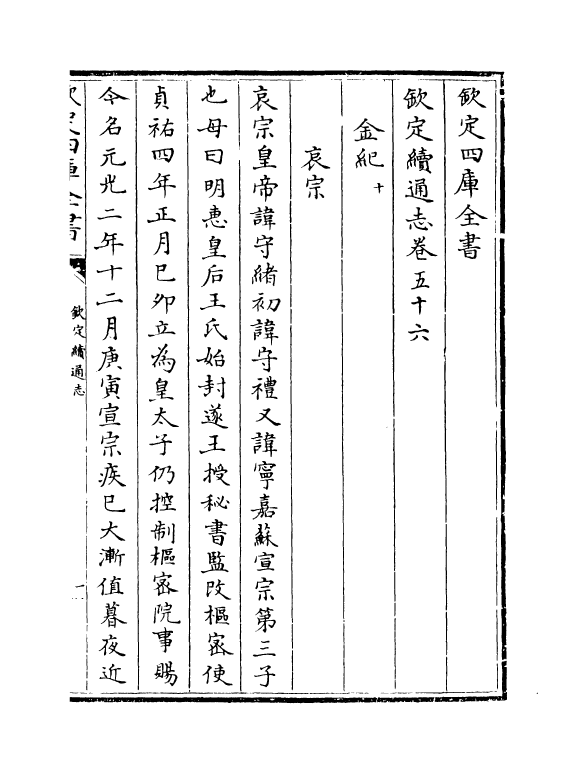 欽定四庫全書
欽定續通志卷五十六
金紀十
哀宗
哀宗皇帝諱守緒初諱守禮又諱寧嘉蘇宣宗第三子
也母曰明惠皇后王氏始封遂王授秘書監改樞密使
貞祐四年正月已夘立為皇太子仍控制樞密院事賜
今名元光二年十二月庚寅宣宗疾已大漸值暮夜近
欽定四庫全書
欽定續通志
一